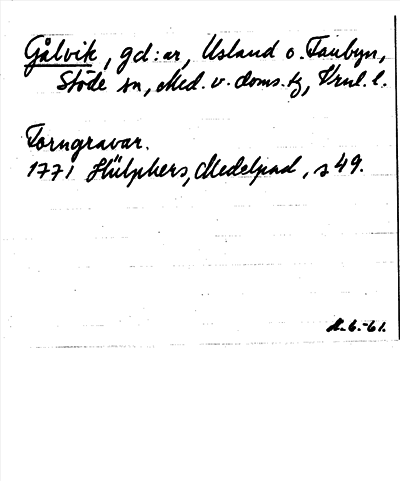 Gålvik, gd:ar, Usland o. Fanbyn,
Stöde sn, Med. v. doms.tg, Vrnl. l.
Forngravar.
1771 Hülphers, Medelpad, s 49.
M.6.-61.